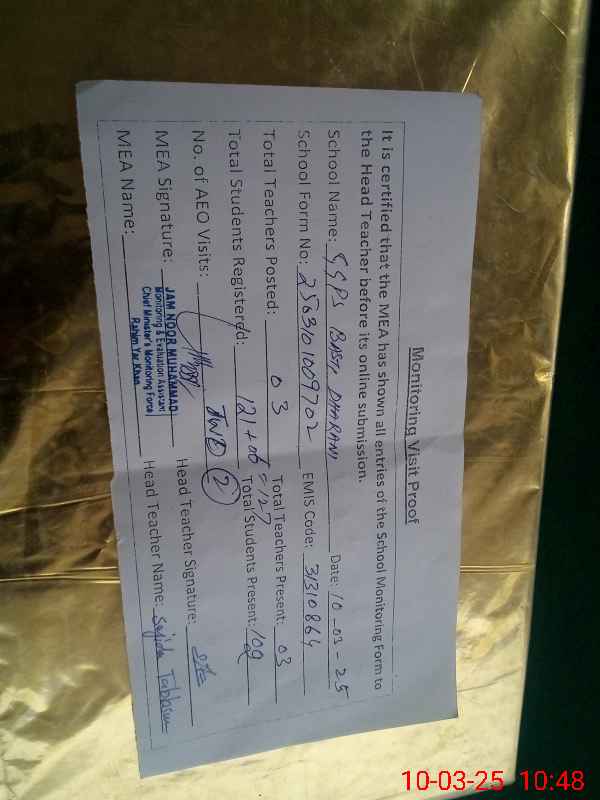 Monitoring Visit Proof
It is certified that the MEA has shown all entries of the School Monitoring Form to
the Head Teacher before its online submission.
School Name: GGPS BASTI DHARANI Date: 10-03-25
School Form No: 2563101009702 EMIS Code: 31310864
Total Teachers Posted: 03 Total Teachers Present: 03
Total Students Registered: 121+06=127 Total Students Present: 109
No. of AEO Visits: TWO (2)
MEA Signature: Head Teacher Signature:
JAM NOOR MUHAMMAD
Monitoring & Evaluation Assistant
Chief Minister's Monitoring Force
Rahim Yar Khan
MEA Name: Head Teacher Name: Sajida Tabbasum
10-03-25 10:48